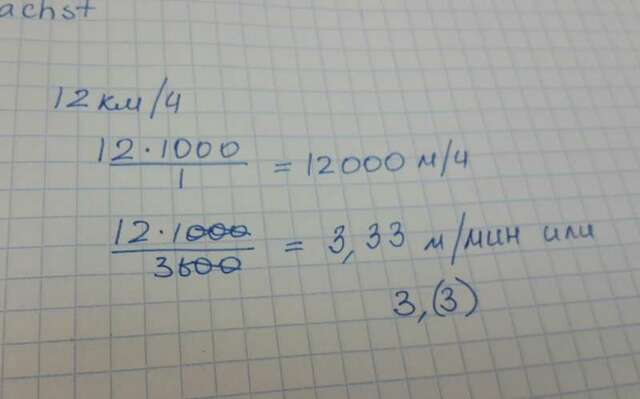 achst
12 км/ч
12·1000
1
= 12000 м/ч
12·1000
3600
= 3,33 м/мин или
3,(3)